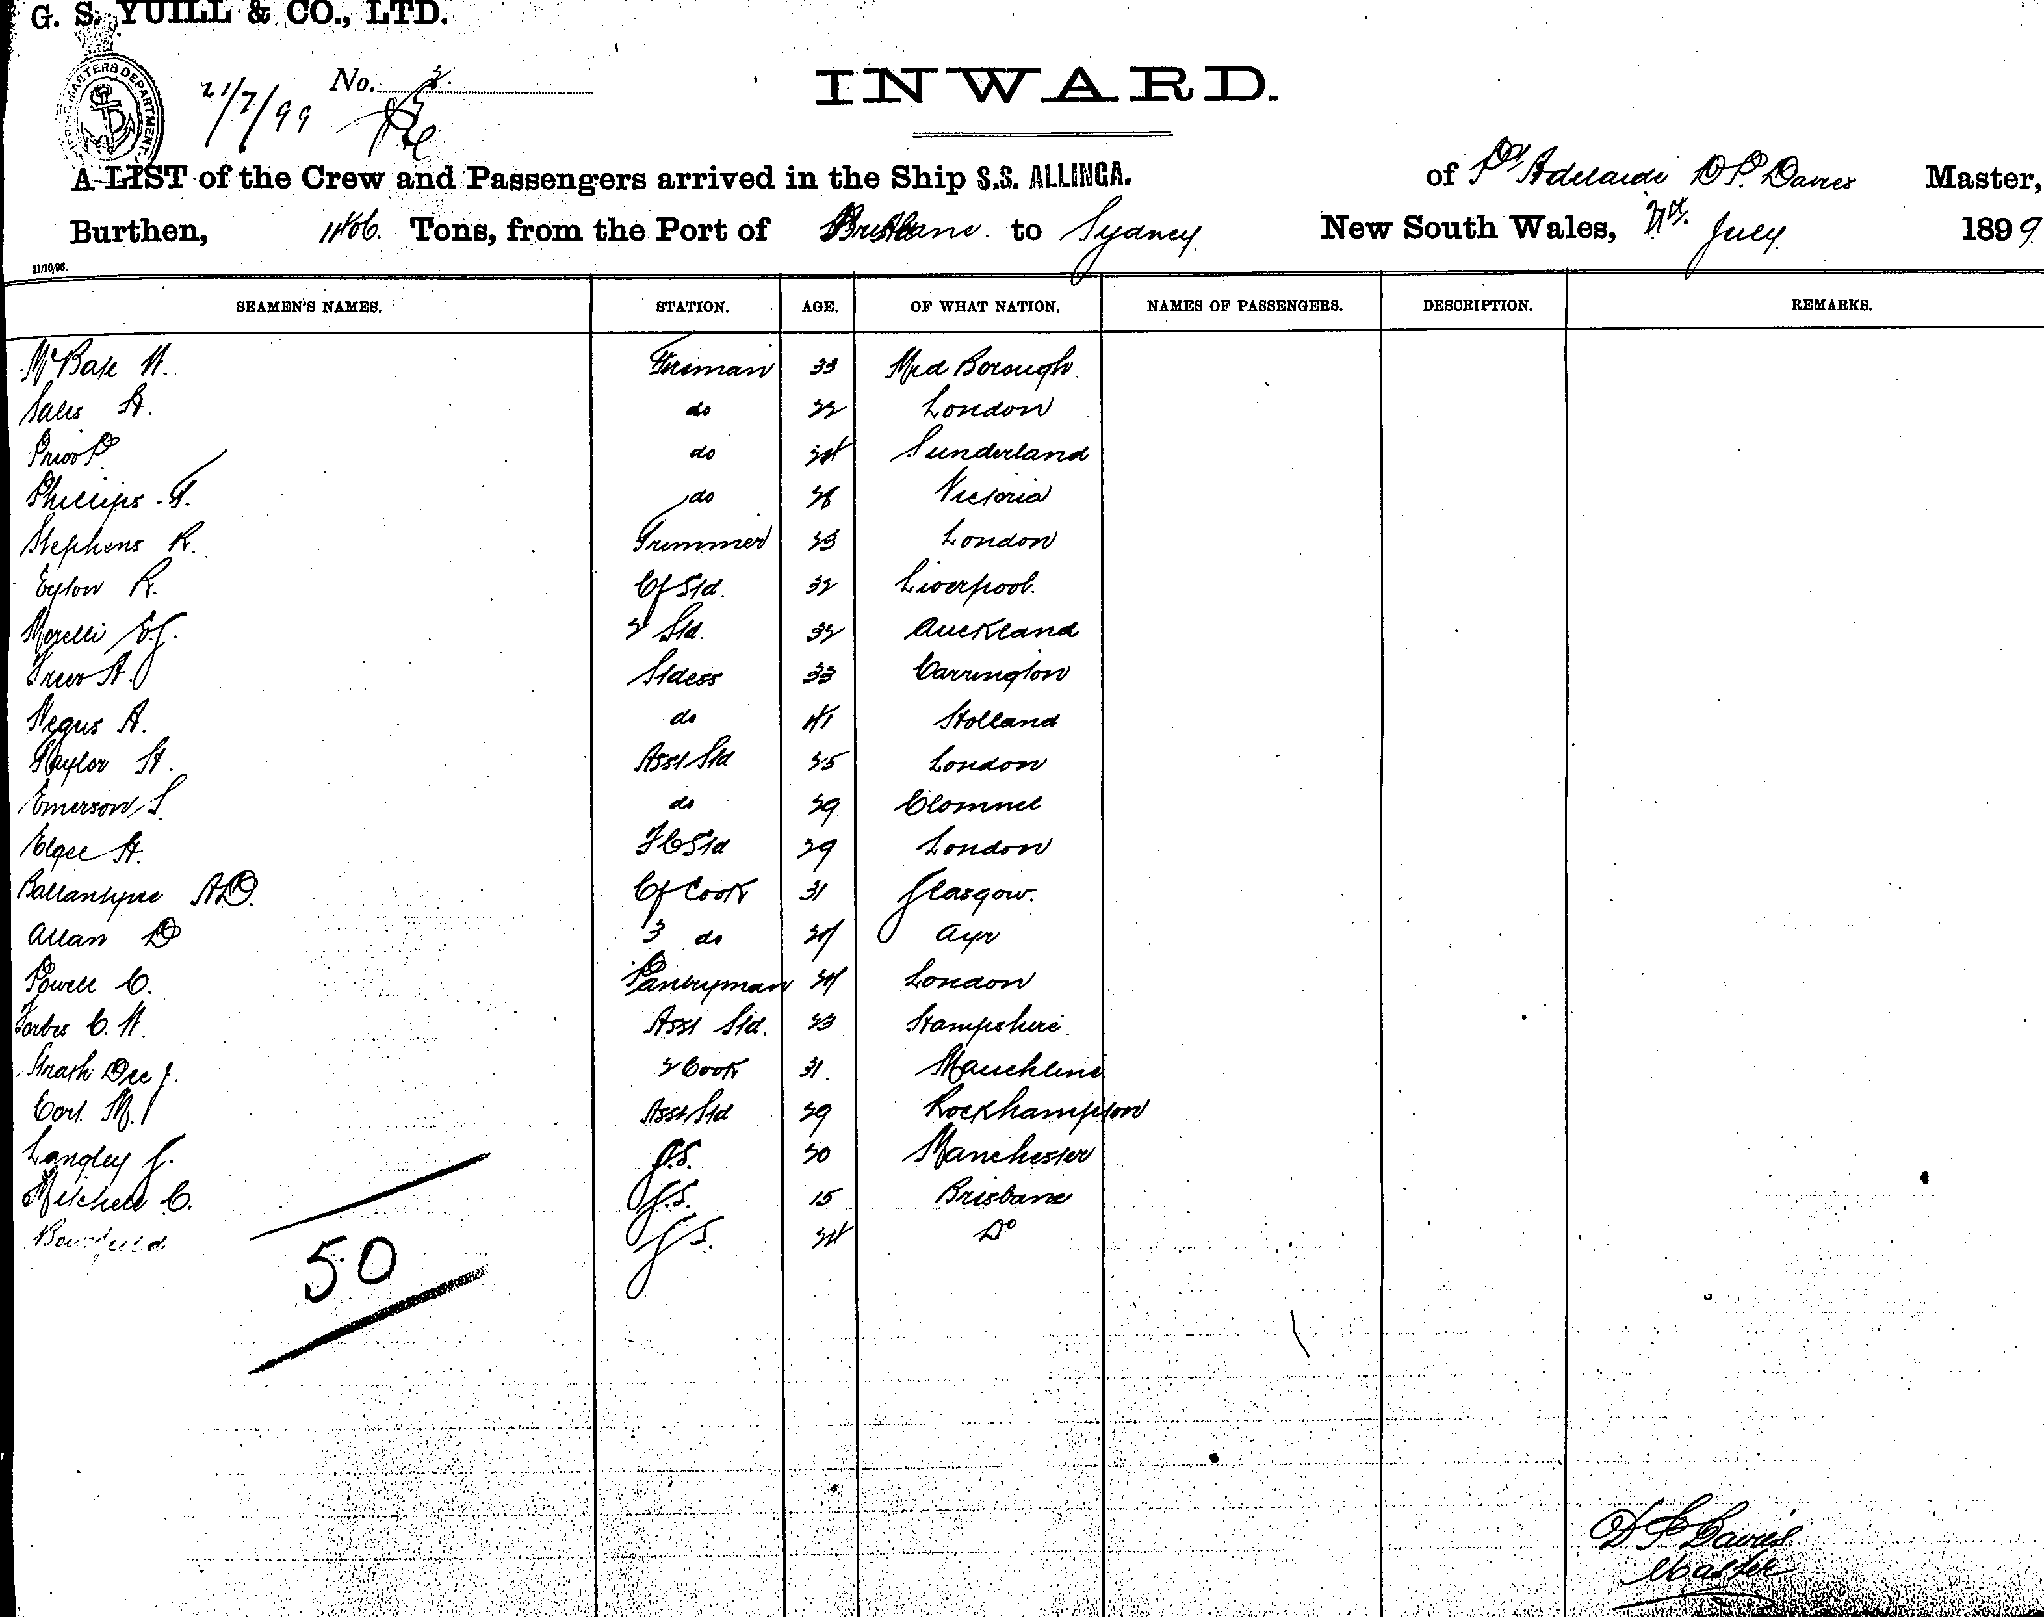 G. S. YUILL & CO., LTD.
21/7/99 No. 2.
INWARD.
A LIST of the Crew and Passengers arrived in the Ship S.S. ALLINGA. of Pt Adelaide D P. Davies Master,
Burthen, Tons, from the Port of Brisbane to Sydney New South Wales, 21st. July 1899
11/10/98.
SEAMEN'S NAMES. STATION. AGE. OF WHAT NATION. NAMES OF PASSENGERS. DESCRIPTION. REMARKS.
Fireman 33 Mid Borough
Sales H. do 22 London
Prior P. do 24 Sunderland
Phillips F. do 26 Victoria
Stephens R. Trimmer 23 London
Eylow R. Cf Std. 32 Liverpool.
Morelli 2 Std. 32 Auckland
Stdess 33 Carrington
Negus A. do 41 Holland
Taylor H. Asst Std 25 London
Emerson S. do 29 Clonmel
Elgee H. F C Std 29 London
Ballantyne A.D. Cf Cook 31 Glasgow.
Allan D 3 do 24 Ayr
Powell C. Pantryman 24 London
Forbes C. H. Asst Std. 23 Hampshire
Strath Dee J. 2 Cook 31. Mauchline
Cort. M. Asst Std 29 Rockhampton
Langley J. G.S. 20 Manchester
Mitchell C. G.S. 15 Brisbane
Bousfield G S. 24 Do
50
D P Davies
Master